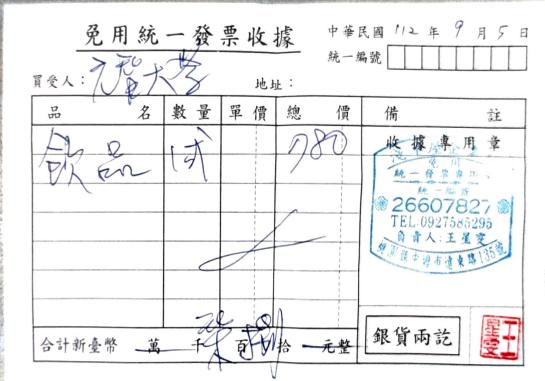 免用統一發票收據
中華民國 112 年 9 月 5 日
統一編號
買受人：元智大學
地址：
品 名 數量 單價 總 價 備 註
飲品 一式 780 收據專用章
免用
統一發票專用
統一編號
26607827
TEL:0927585295
負責人:王星雯
桃園縣中壢市遠東路135號
合計新臺幣 萬 千 柒 百 捌 拾 元整
銀貨兩訖
王星雯